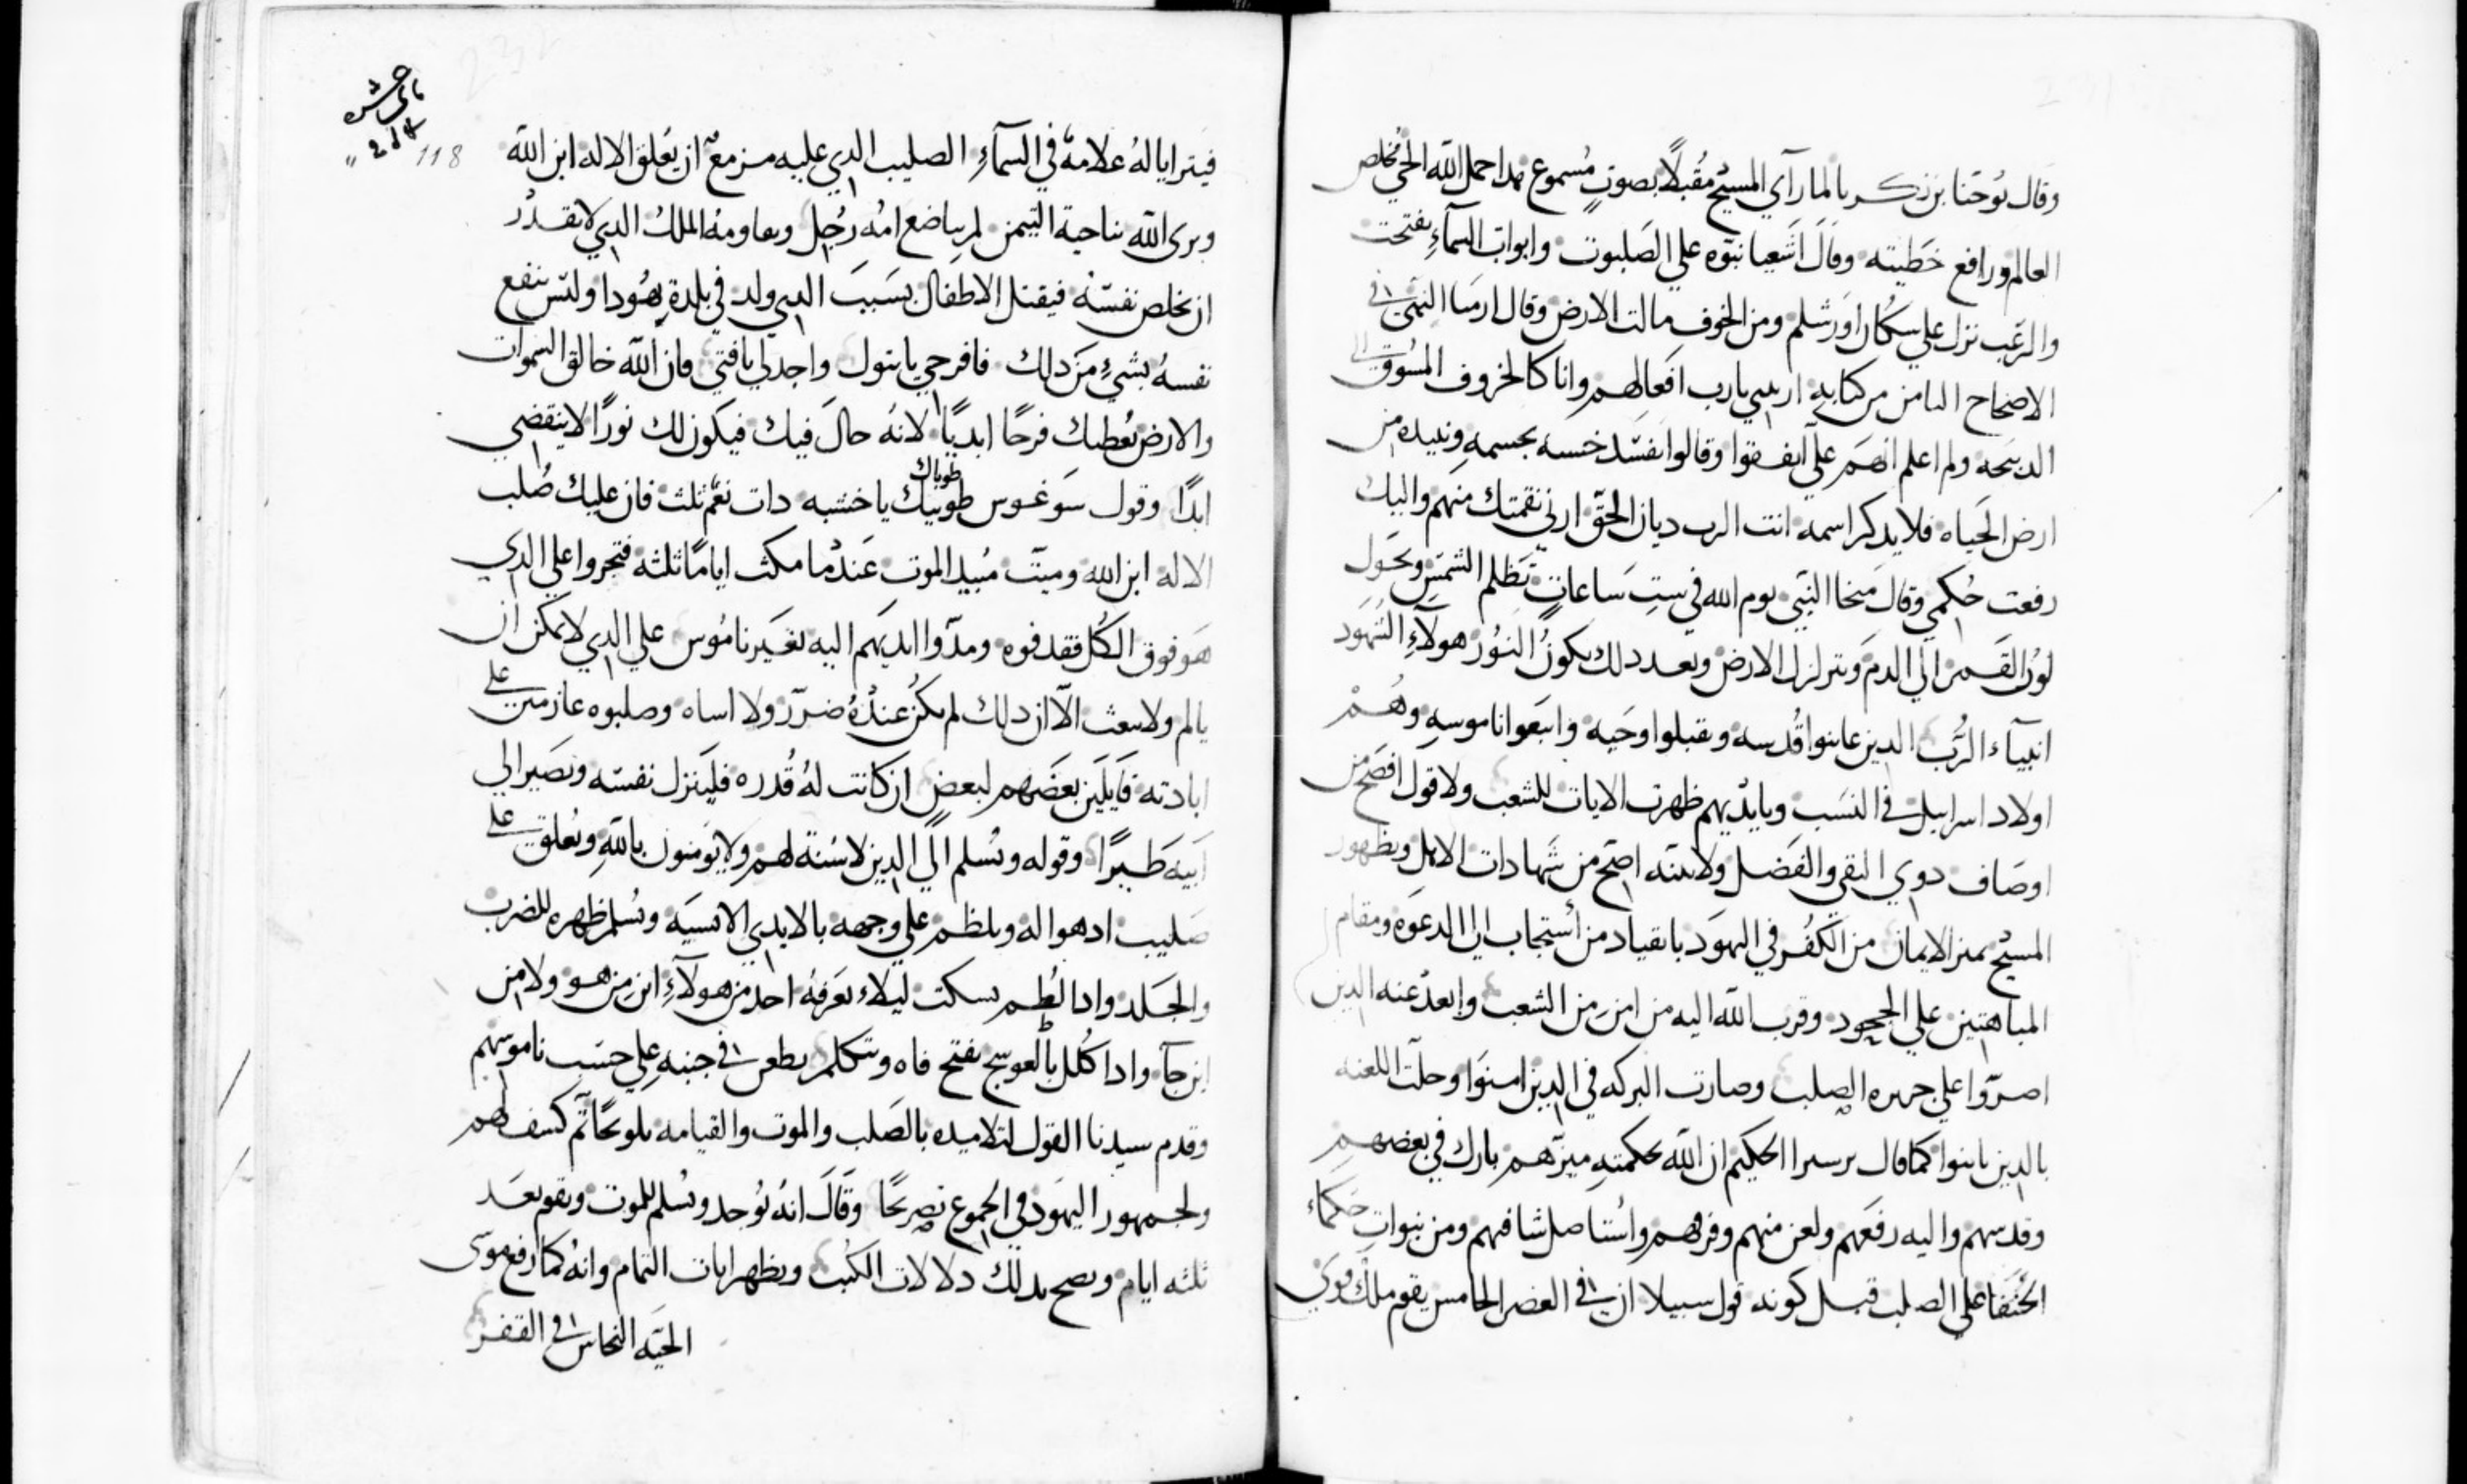 وقال يوحنا بن زكريا لما رآي المسيح مقبلاً بصوتٍ مسموع هدا حمل الله الحي مخلص
العالم ورافع خطيته وقال اشعيا نبوه علي الصلبوت وابواب السمآءِ يفتحت
والرعب نزل علي سكان اورشلم ومن الخوف مالت الارض وقال ارميا النبي في
الاصحاح الثامن من كتابه اريني يارب افعالهم وانا كالخروف المسوق الي
الدبيحه ولم اعلم انهم علي اتفقوا وقالوا نفسد خبسه بجسمه ونبيده من
ارض الحياه فلا يدكر اسمه انت الرب ديان الحق ارني نقمتك منهم واليك
رفعت حكمي وقال ميخا النبي يوم الله في ست ساعات تظلم الشمس ويحول
لون القمر الي الدم وتتزلزل الارض وبعد دلك يكون النور هولآءِ الشهود
انبيآء الرب الدين عاينوا قدسه وتقبلوا وحيه واتبعوا ناموسه وهم
اولاد اسراييل في النسب وبايديهم ظهرت الايات للشعب ولا قول افصح من
اوصاف دوي التقي والفضل ولا بينه اصح من شهادات الاهل وبظهور
المسيح تميز الايمان من الكفر في اليهود بانقياد من استجاب الي الدعوه ومقام
المباهتين علي الجحود وقرب الله اليه من امن من الشعب وابعد عنه الدين
اصروا علي جهره الصلب وصارت البركه في الدين امنوا وحلت اللعنه
بالدين باينوا كما قال برسيرا الحكيم ان الله بحكمته ميزهم بارك في بعضهم
وقدسهم واليه رفعهم ولعن منهم وفرهم واستاصل شافهم ومن نبوات حكماء
الحنفا علي الصلب قبل كونه قول سبيلا ان في العصر الخامس يقوم ملك قوي
118
فيترايا له علامة في السمآءِ الصليب الدي عليه مزمع ان يعلق الاله ابن الله
ويري الله بناحية التيمن لم يباضع امه رجل ويعاومه الملك الدي لا يقدر
ان يخلص نفسه فيقتل الاطفال بسبب الدي ولد في بلدة يهودا وليس ينفع
نفسه بشيءٍ من دلك فافرحي يا بتول واجدلي يا فتي فان الله خالق السموات
والارض يعطيك فرحًا ابديًا لانه حال فيك فيكون لك نورًا لا ينقضي
ابدًا وقول سوغوس طوبيك طوباك يا خشبه دات نعم ثلث فان عليك صلب
الاله ابن الله وميت مبيد الموت عندما مكث ايامًا ثلثه فتجروا علي الدي
هو فوق الكل فقدفوه ومدوا ايديهم اليه بغير ناموس علي الدي لا يمكن ان
يالم ولا يبعث الا ان دلك لم يكن عنده ضرر ولا اساه وصلبوه عازمين علي
ابادته قايلين بعضهم لبعض ان كانت له قدره فلينزل نفسه ويصير الي
ابيه طيرًا وقوله ويسلم الي الدين لا سنة لهم ولا يومنون بالله ويعلق علي
صليب ادهواله ويلطم علي وجهه بالايدي الانسيه ويسلم ظهره للضرب
والجلد وادا لطم يسكت ليلاء يعرفه احد من هولآءِ ابن من هو ولا من
اين جآ وادا كلل بالعوسج يفتح فاه ويتكلم يطعن في جنبه علي حسب ناموسهم
وقدم سيدنا القول لتلاميده بالصلب والموت والقيامه تلويحًا ثم كشف لهم
ولجمهور اليهود في الجموع تصريحًا وقال انه يوخد ويسلم للموت ويقوم بعد
ثلثه ايام ويصح بدلك دلالات الكتب ويظهر ايات التمام وانه كما رفع موسي
الحيه النحاس في القفر